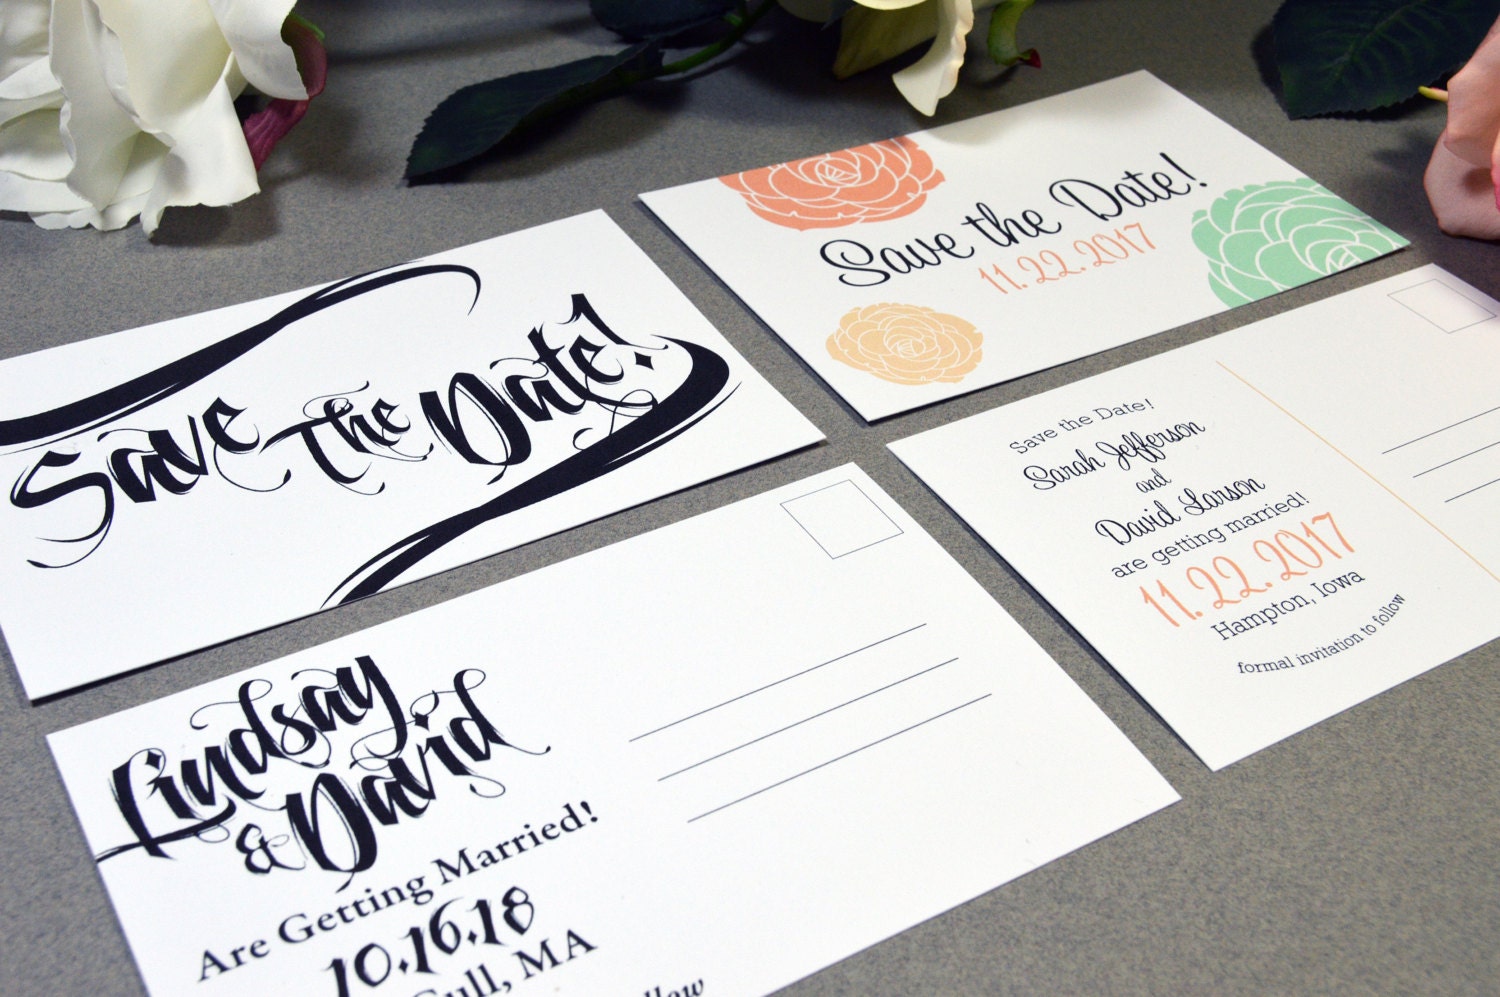 Save the Date!
Save the Date!
11.22.2017
Lindsay
& David
Are Getting Married!
10.16.18
Gull, MA
Save the Date!
Sarah Jefferson
and
David Larson
are getting married!
11.22.2017
Hampton, Iowa
formal invitation to follow